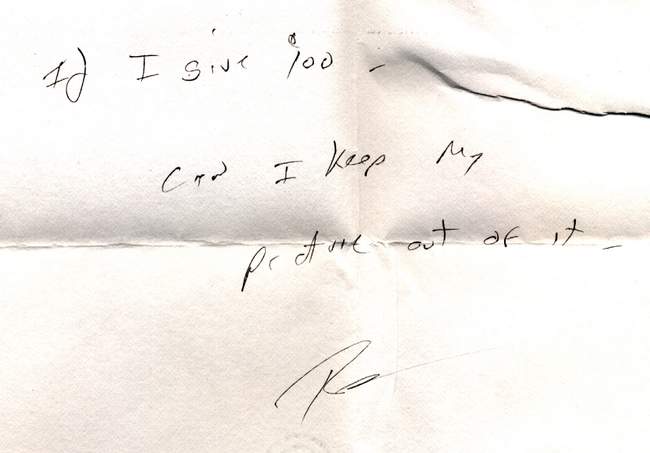 If I give $100 -
Can I keep my
picture out of it -